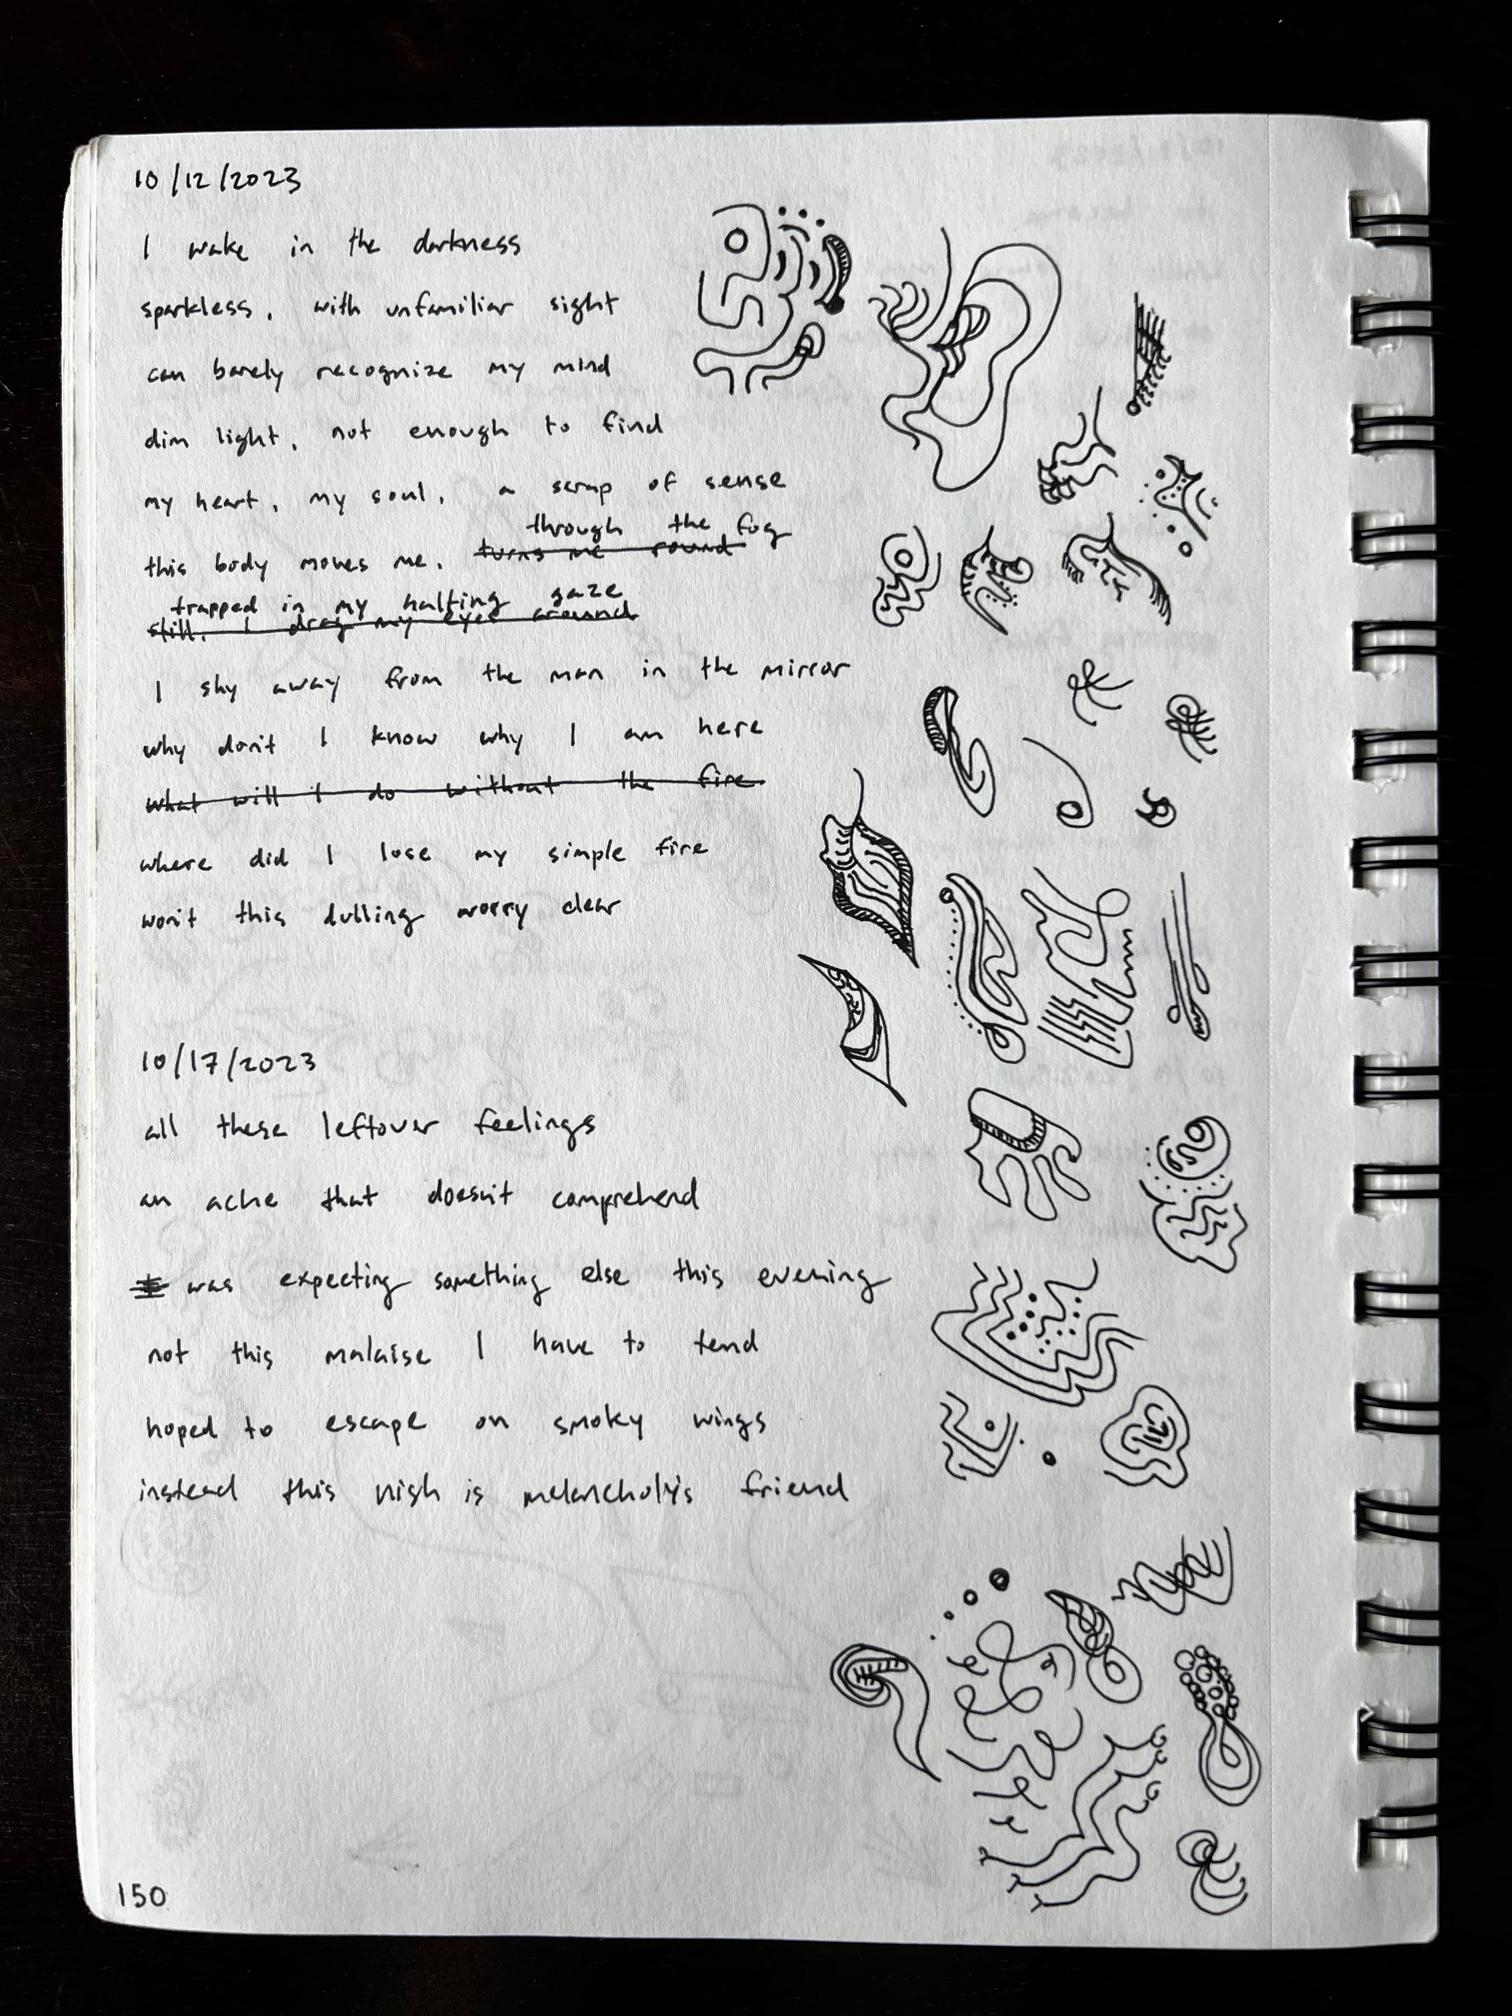 10/12/2023
I wake in the darkness
sparkless, with unfamiliar sight
can barely recognize my mind
dim light, not enough to find
my heart, my soul, a scrap of sense
through the fog
this body moves me, turns me round
trapped in my halting gaze
still, I drag my eyes around
I shy away from the man in the mirror
why don't I know why I am here
what will I do without the fire
where did I lose my simple fire
won't this dulling worry clear
10/17/2023
all these leftover feelings
an ache that doesn't comprehend
I was expecting something else this evening
not this malaise I have to tend
hoped to escape on smoky wings
instead this nigh is melancholy's friend
150